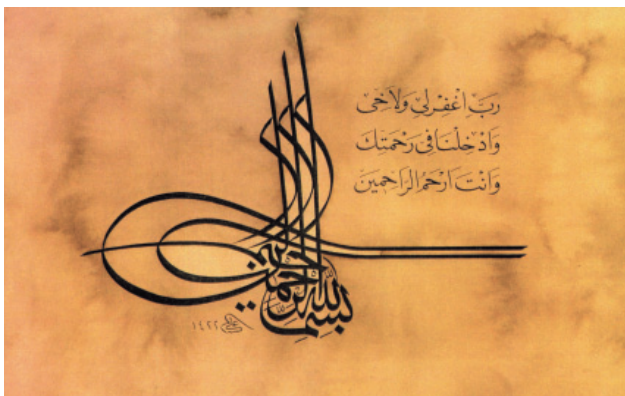 رَبِّ اغْفِرْلِي وَلِأَخِي
وَادْخِلْنَا فِي رَحْمَتِكَ
وَانْتَ ارْحَمُ الرَّاحِمِينَ
بسم الله الرحمن الرحيم
١٤٢٢